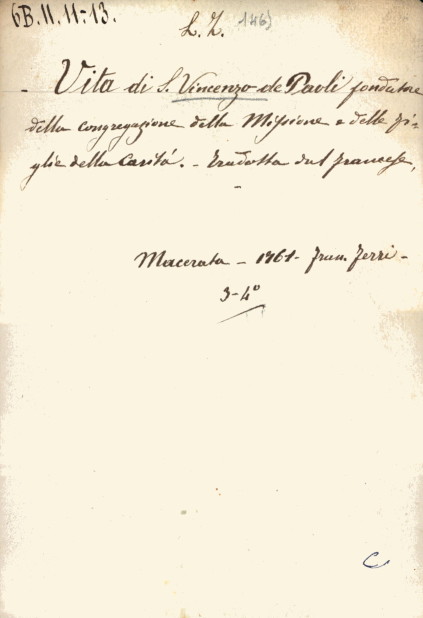 6B.II.11-13.
L. Z. 1463
- Vita di S. Vincenzo de Paoli fondatore
della congregazione della Missione e delle fi-
glie della Carità. - Tradotta dal francese.
-
Macerata - 1761 - Fran. Ferri -
3-4°
C